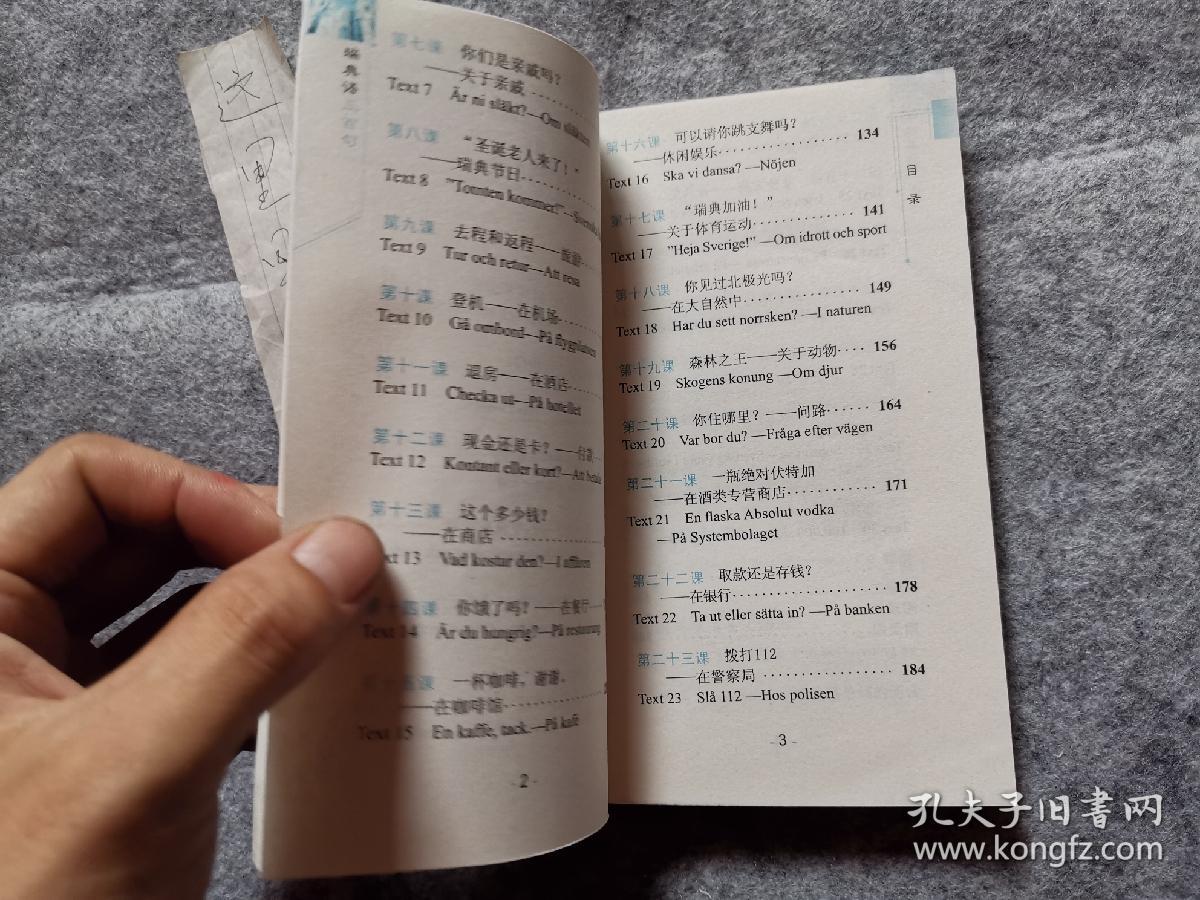 这里
瑞典语三百句
第七课 你们是亲戚吗?
——关于亲戚
Text 7 Är ni släkt?—Om släkten
第八课 “圣诞老人来了!”
——瑞典节日
Text 8 "Tomten kommer!"—Svenska
第九课 去程和返程——旅游
Text 9 Tur och retur—Att resa
第十课 登机——在机场
Text 10 Gå ombord—På flygplatsen
第十一课 退房——在酒店
Text 11 Checka ut—På hotellet
第十二课 现金还是卡?——付款
Text 12 Kontant eller kort?—Att betala
第十三课 这个多少钱?
——在商店
Text 13 Vad kostar den?—I affären
第十四课 你饿了吗?——在餐厅
Text 14 Är du hungrig?—På restaurang
第十五课 一杯咖啡,谢谢.
——在咖啡馆
Text 15 En kaffe, tack.—På kafé
- 2 -
目录
第十六课 可以请你跳支舞吗?
——休闲娱乐 134
Text 16 Ska vi dansa? —Nöjen
第十七课 “瑞典加油!”
——关于体育运动 141
Text 17 "Heja Sverige!" —Om idrott och sport
第十八课 你见过北极光吗?
——在大自然中 149
Text 18 Har du sett norrsken? —I naturen
第十九课 森林之王——关于动物 156
Text 19 Skogens konung —Om djur
第二十课 你住哪里?——问路 164
Text 20 Var bor du? —Fråga efter vägen
第二十一课 一瓶绝对伏特加
——在酒类专营商店 171
Text 21 En flaska Absolut vodka
—På Systembolaget
第二十二课 取款还是存钱?
——在银行 178
Text 22 Ta ut eller sätta in? —På banken
第二十三课 拨打112
——在警察局 184
Text 23 Slå 112 —Hos polisen
- 3 -
孔夫子旧书网
www.kongfz.com